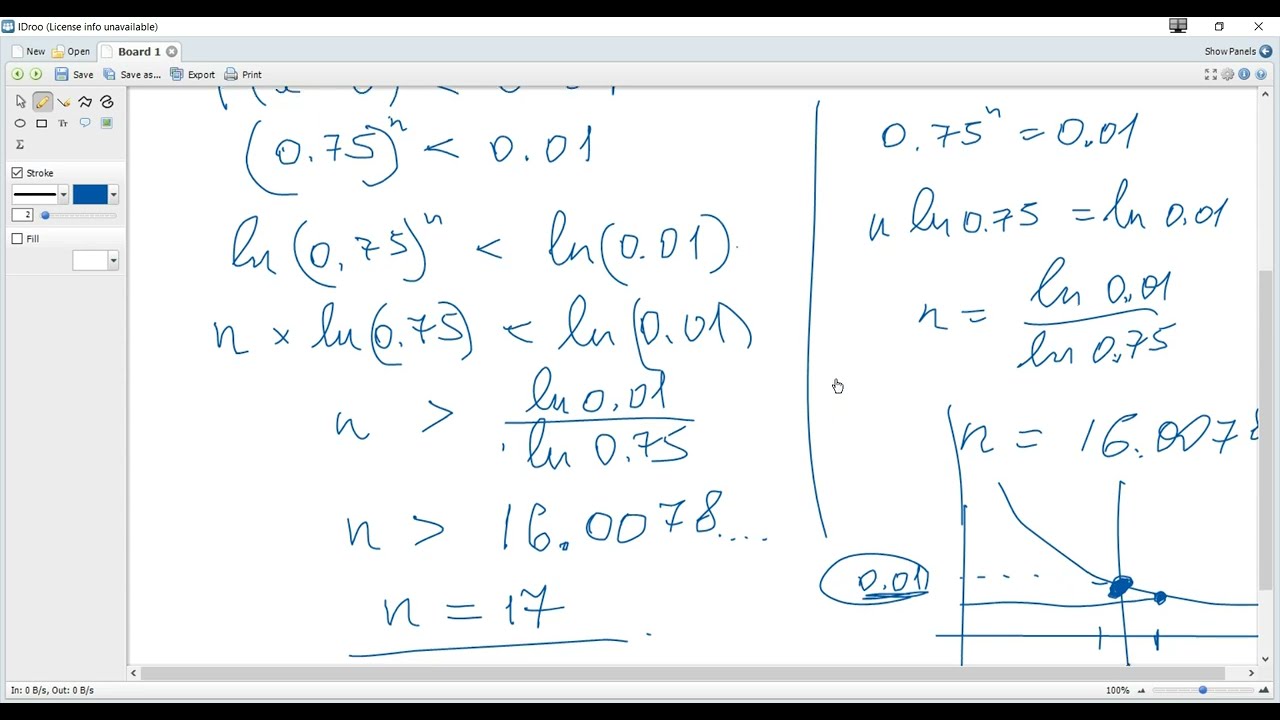 IDroo (License info unavailable)
New Open Board 1 Show Panels
Save Save as... Export Print
(0.75)ⁿ < 0.01
ln(0.75)ⁿ < ln(0.01)
n × ln(0.75) < ln(0.01)
n > ln 0.01 / ln 0.75
n > 16.0078....
n = 17
0.75ⁿ = 0.01
n ln 0.75 = ln 0.01
n = ln 0.01 / ln 0.75
n = 16.0078
0.01
Tr
Σ
Stroke
2
Fill
In: 0 B/s, Out: 0 B/s
100%